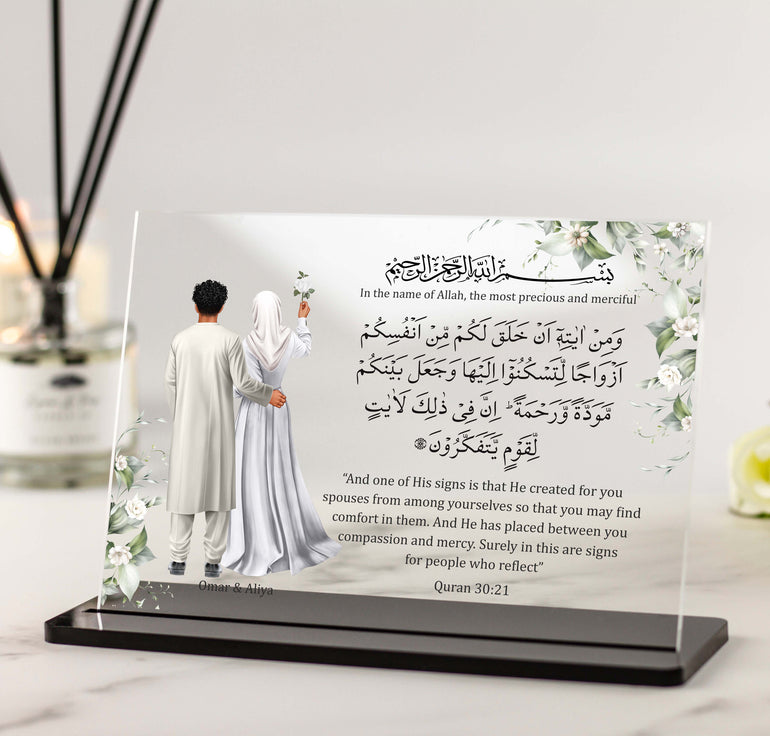 بِسْمِ اللهِ الرَّحْمٰنِ الرَّحِيْمِ
In the name of Allah, the most precious and merciful
وَمِنْ اٰيٰتِهٖٓ اَنْ خَلَقَ لَكُمْ مِّنْ اَنْفُسِكُمْ
اَزْوَاجًا لِّتَسْكُنُوْٓا اِلَيْهَا وَجَعَلَ بَيْنَكُمْ
مَّوَدَّةً وَّرَحْمَةً ؕ اِنَّ فِيْ ذٰلِكَ لَاٰيٰتٍ
لِّقَوْمٍ يَّتَفَكَّرُوْنَ
“And one of His signs is that He created for you
spouses from among yourselves so that you may find
comfort in them. And He has placed between you
compassion and mercy. Surely in this are signs
for people who reflect”
Quran 30:21
Omar & Aliya